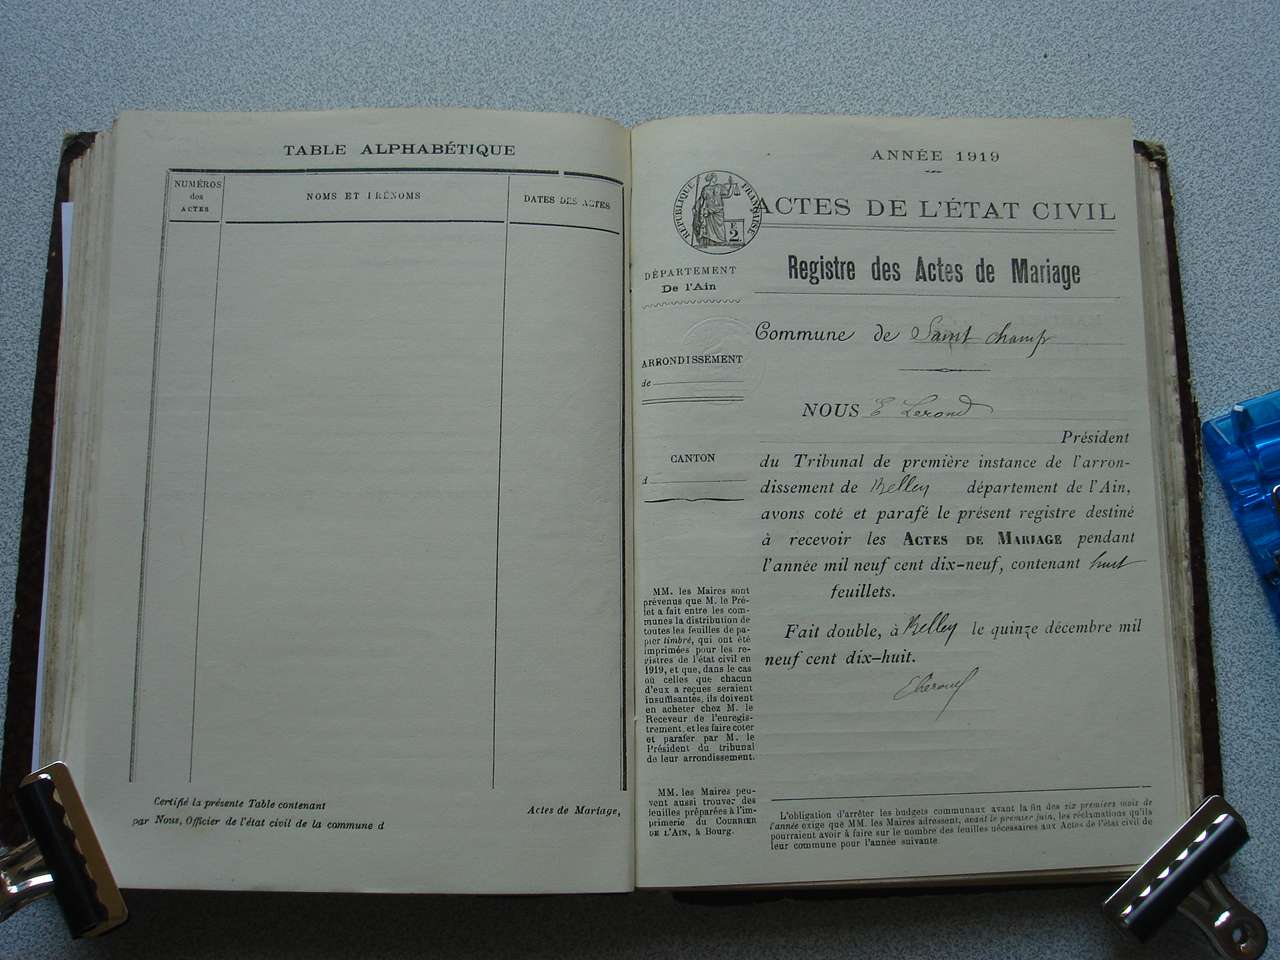 TABLE ALPHABÉTIQUE
NUMÉROS
des
ACTES
NOMS ET PRÉNOMS
DATES DES ACTES
Certifié la présente Table contenant
Actes de Mariage,
par Nous, Officier de l'état civil de la commune d
ANNÉE 1919
RÉPUBLIQUE FRANÇAISE
F.
2
ACTES DE L'ÉTAT CIVIL
DÉPARTEMENT
De l'Ain
Registre des Actes de Mariage
Commune de Saint Champ
ARRONDISSEMENT
de
CANTON
d
NOUS E Lerond
Président
du Tribunal de première instance de l'arron-
dissement de Belley département de l'Ain,
avons coté et parafé le présent registre destiné
à recevoir les ACTES DE MARIAGE pendant
l'année mil neuf cent dix-neuf, contenant huit
feuillets.
Fait double, à Belley le quinze décembre mil
neuf cent dix-huit.
MM. les Maires sont
prévenus que M. le Pré-
fet a fait entre les com-
munes la distribution de
toutes les feuilles de pa-
pier timbré, qui ont été
imprimées pour les re-
gistres de l'état civil en
1919, et que, dans le cas
où celles que chacun
d'eux a reçues seraient
insuffisantes, ils doivent
en acheter chez M. le
Receveur de l'enregis-
trement, et les faire coter
et parafer par M. le
Président du tribunal
de leur arrondissement.
MM. les Maires peu-
vent aussi trouver des
feuilles préparées à l'im-
primerie du COURRIER
DE L'AIN, à Bourg.
L'obligation d'arrêter les budgets communaux avant la fin des six premiers mois de
l'année exige que MM. les Maires adressent, avant le premier juin, les réclamations qu'ils
pourraient avoir à faire sur le nombre des feuilles nécessaires aux Actes de l'état civil de
leur commune pour l'année suivante.